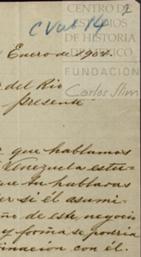 CENTRO DE
ESTUDIOS
DE HISTORIA
DE MÉXICO
FUNDACIÓN
Carlos Slim
2
C Val 14
Enero de 190
del Rio
presente
que hablamos
Venezuela estu-
que tu hablaras
ver si él asumi
de este negocio
y forma se podría
binacion con él.